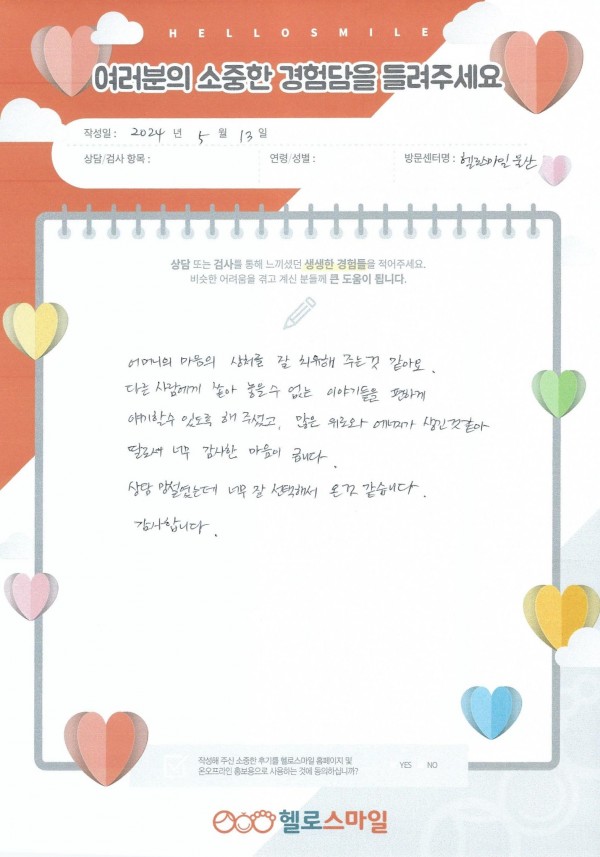 HELLOSMILE
여러분의 소중한 경험담을 들려주세요
작성일 : 2024 년 5 월 13 일
상담/검사 항목 : 연령/성별 : 방문센터명 : 헬로스마일 울산
상담 또는 검사를 통해 느끼셨던 생생한 경험들을 적어주세요.
비슷한 어려움을 겪고 계신 분들께 큰 도움이 됩니다.
어머니의 마음의 상처를 잘 치유해 주는것 같아요.
다른 사람에게 쏟아 놓을수 없는 이야기들을 편하게
얘기할수 있도록 해 주셨고, 많은 위로와 에너지가 생긴것같아
딸로써 너무 감사한 마음이 큽니다.
상담 망설였는데 너무 잘 선택해서 온것 같습니다.
감사합니다.
작성해 주신 소중한 후기를 헬로스마일 홈페이지 및
온오프라인 홍보용으로 사용하는 것에 동의하십니까? YES NO
헬로스마일